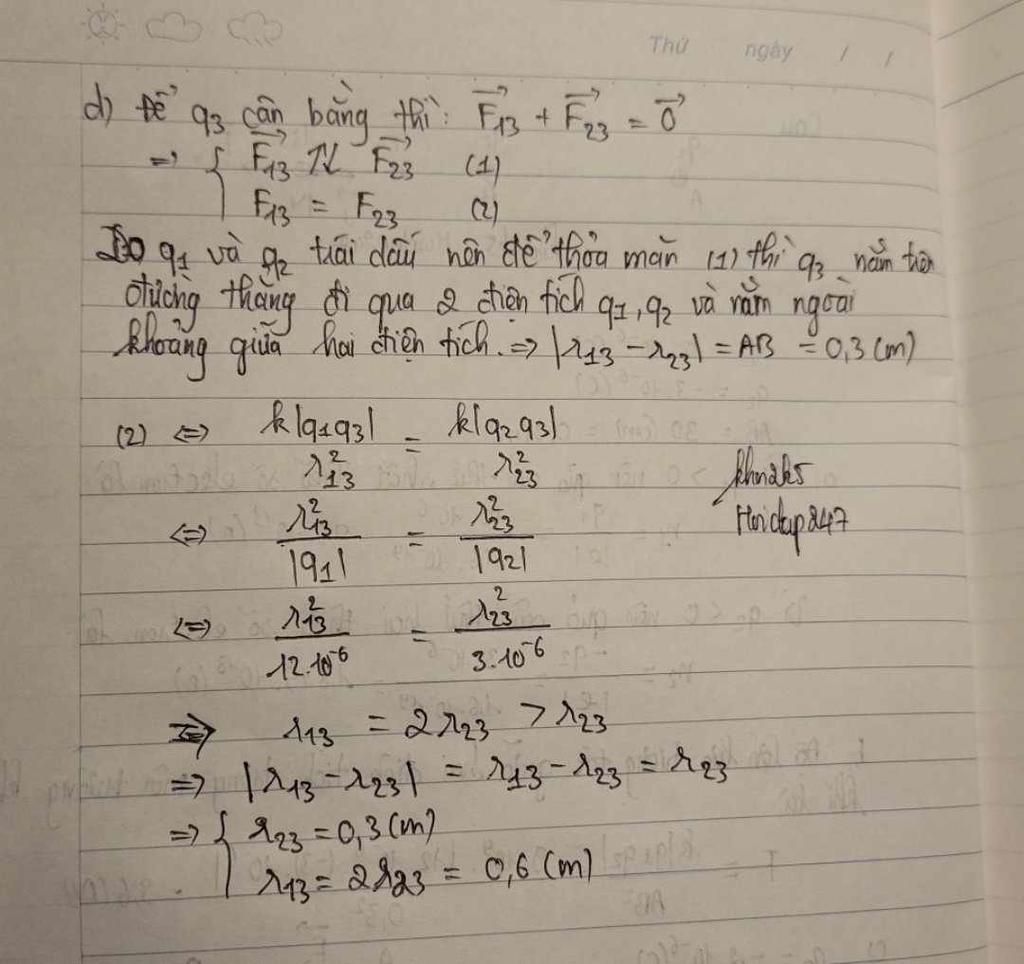 Thứ ngày / /
d) Để q₃ cân bằng thì: F₁₃⃗ + F₂₃⃗ = 0⃗
=> { F₁₃⃗ ↑↓ F₂₃⃗ (1)
F₁₃ = F₂₃ (2)
Do q₁ và q₂ trái dấu nên để thỏa mãn (1) thì q₃ nằm trên
đường thẳng đi qua 2 điện tích q₁, q₂ và nằm ngoài
khoảng giữa hai điện tích. => |r₁₃ - r₂₃| = AB = 0,3 (m)
(2) <=> k|q₁q₃| / r₁₃² = k|q₂q₃| / r₂₃²
khna2k5
Hoidap247
<=> r₁₃² / |q₁| = r₂₃² / |q₂|
<=> r₁₃² / 12.10⁻⁶ = r₂₃² / 3.10⁻⁶
=> r₁₃ = 2r₂₃ > r₂₃
=> |r₁₃ - r₂₃| = r₁₃ - r₂₃ = r₂₃
=> { r₂₃ = 0,3 (m)
r₁₃ = 2r₂₃ = 0,6 (m)